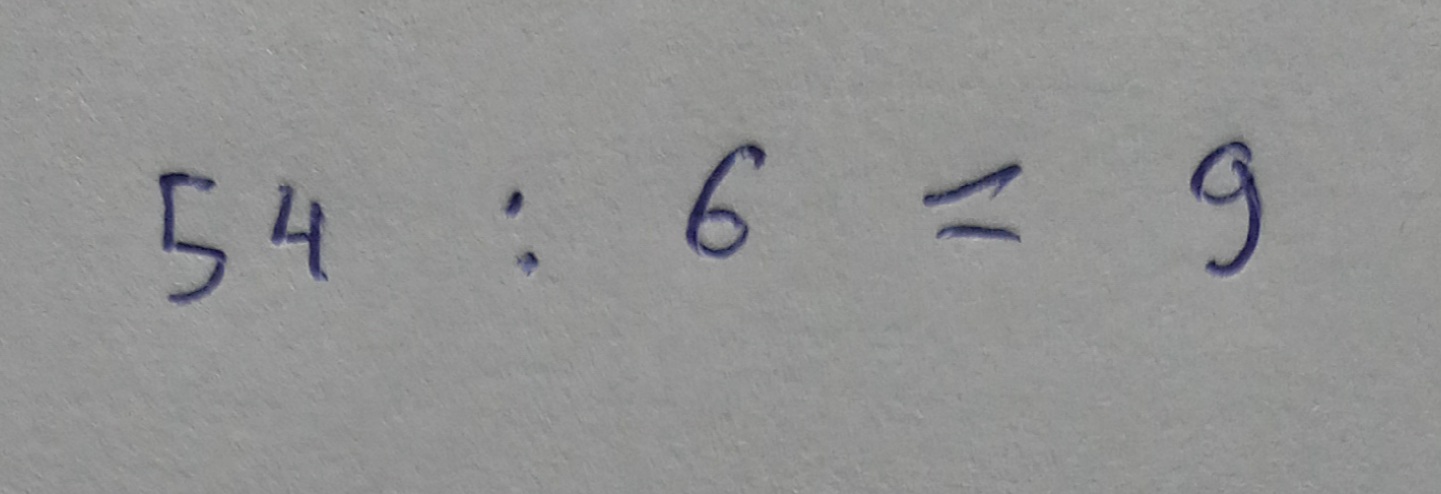 54 : 6 = 9